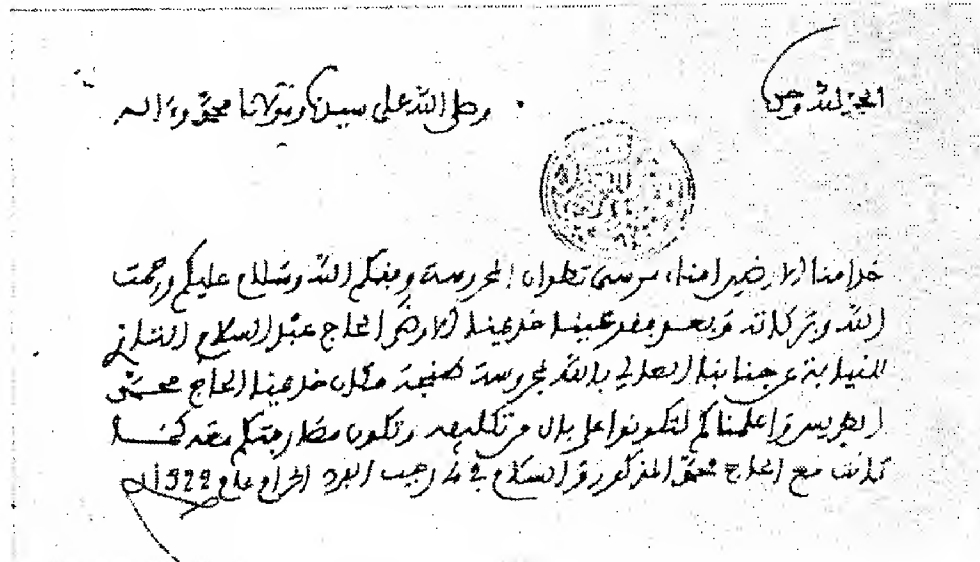 الحمد لله وحده وصلى الله على سيدنا ومولانا محمد وءاله
خدامنا الارضين امناء مرسى تطوان المحروسة وفقكم الله وسلام عليكم ورحمت
الله وبركاته وبعد فقد عينا خديمنا الارضى الحاج عبد السلام التازي
للنيابة عن جنابنا العالي بالله بمحروسة طنجة مكان خديمنا الحاج محمد
الطريس واعلمناكم لتكونوا على بال من تكليفه وتكون مفاوضتكم معه كما
كانت مع الحاج محمد المذكور والسلام في 4 رجب الفرد الحرام عام 1322